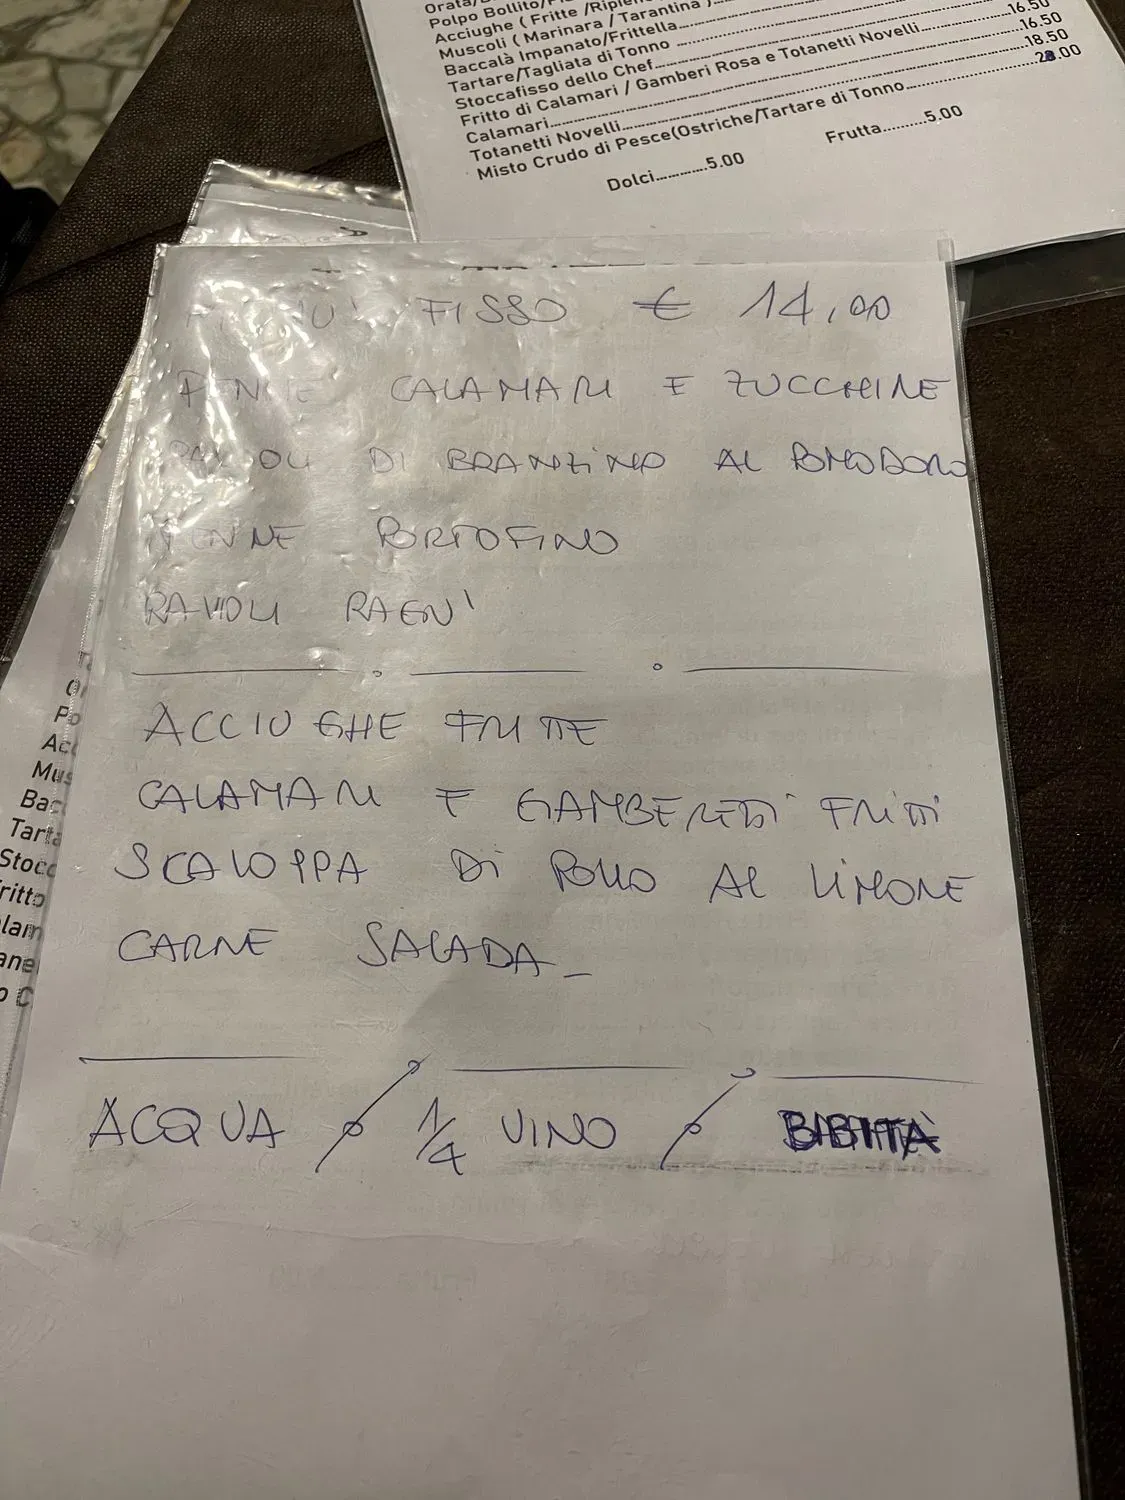 Polpo Bollito/
Acciughe ( Fritte /Ripiene
Muscoli ( Marinara / Tarantina )
Baccalà Impanato/Frittella
Tartare/Tagliata di Tonno
Stoccafisso dello Chef
Fritto di Calamari / Gamberi Rosa e Totanetti Novelli 16.50
Calamari 16.50
Totanetti Novelli 18.50
Misto Crudo di Pesce(Ostriche/Tartare di Tonno 28.00
Dolci 5.00 Frutta 5.00
MENU' FISSO € 14,00
PENNE CALAMARI E ZUCCHINE
RAVIOLI DI BRANZINO AL POMODORO
PENNE PORTOFINO
RAVIOLI RAGU'
ACCIUGHE FRITTE
CALAMARI E GAMBERETTI FRITTI
SCALOPPA DI POLLO AL LIMONE
CARNE SALADA
ACQUA / 1/4 VINO / BIBITA
Po
Acc
Mus
Bac
Tarta
Stocc
ritto
lam
ane
o C